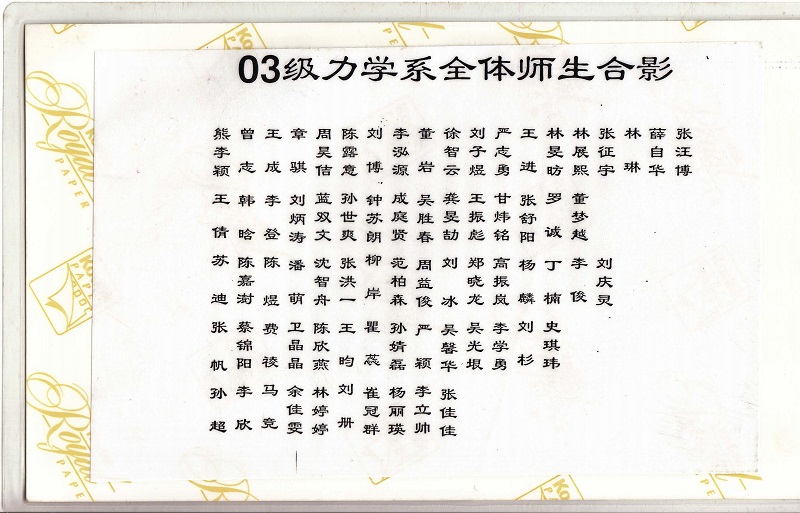 03级力学系全体师生合影
熊李颖 曾志 王成 章骐 周昊佶 陈露意 刘博 李泓源 董岩 徐智云 刘子煜 严志勇 王进 林旻昉 林展熙 张征宇 林琳 薛自华 张汪博
王倩 韩晗 李登 刘炳涛 蓝双文 孙世爽 钟苏朗 成庭贤 吴胜春 龚旻劼 王振彪 甘炜铭 张舒阳 罗诚 董梦越
苏迪 陈嘉澍 陈煜 潘萌 沈智舟 张洪一 柳岸 范柏森 周益俊 刘冰 郑晓龙 高振岚 杨麟 丁楠 李俊 刘庆灵
张帆 蔡锦阳 费祾 卫晶晶 陈欣燕 王昀 瞿蕊 孙婧磊 严颖 吴馨华 吴光垠 李学勇 刘杉 史琪玮
孙超 李欣 马竞 余佳雯 林婷婷 刘册 崔冠群 杨丽瑛 李立帅 张佳佳
Royal
PAPER
Royal
PAPER